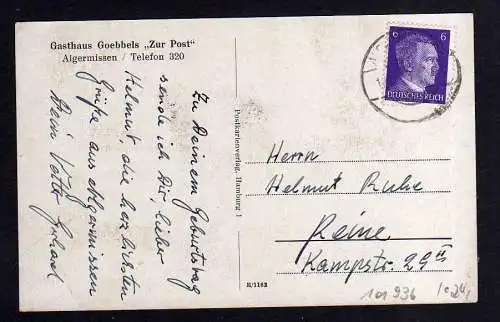 Gasthaus Goebbels „Zur Post"
Algermissen / Telefon 320
Zu Deinem Geburtstag
sende ich Dir, lieber
Helmut, die herzlichsten
Grüße aus Algermissen
Dein Vetter Gerhard
Postkartenverlag, Hamburg 1
R/1163
6 6
DEUTSCHES REICH
Herrn
Helmut Ruhe
Peine
Kampstr. 29 II
101 936